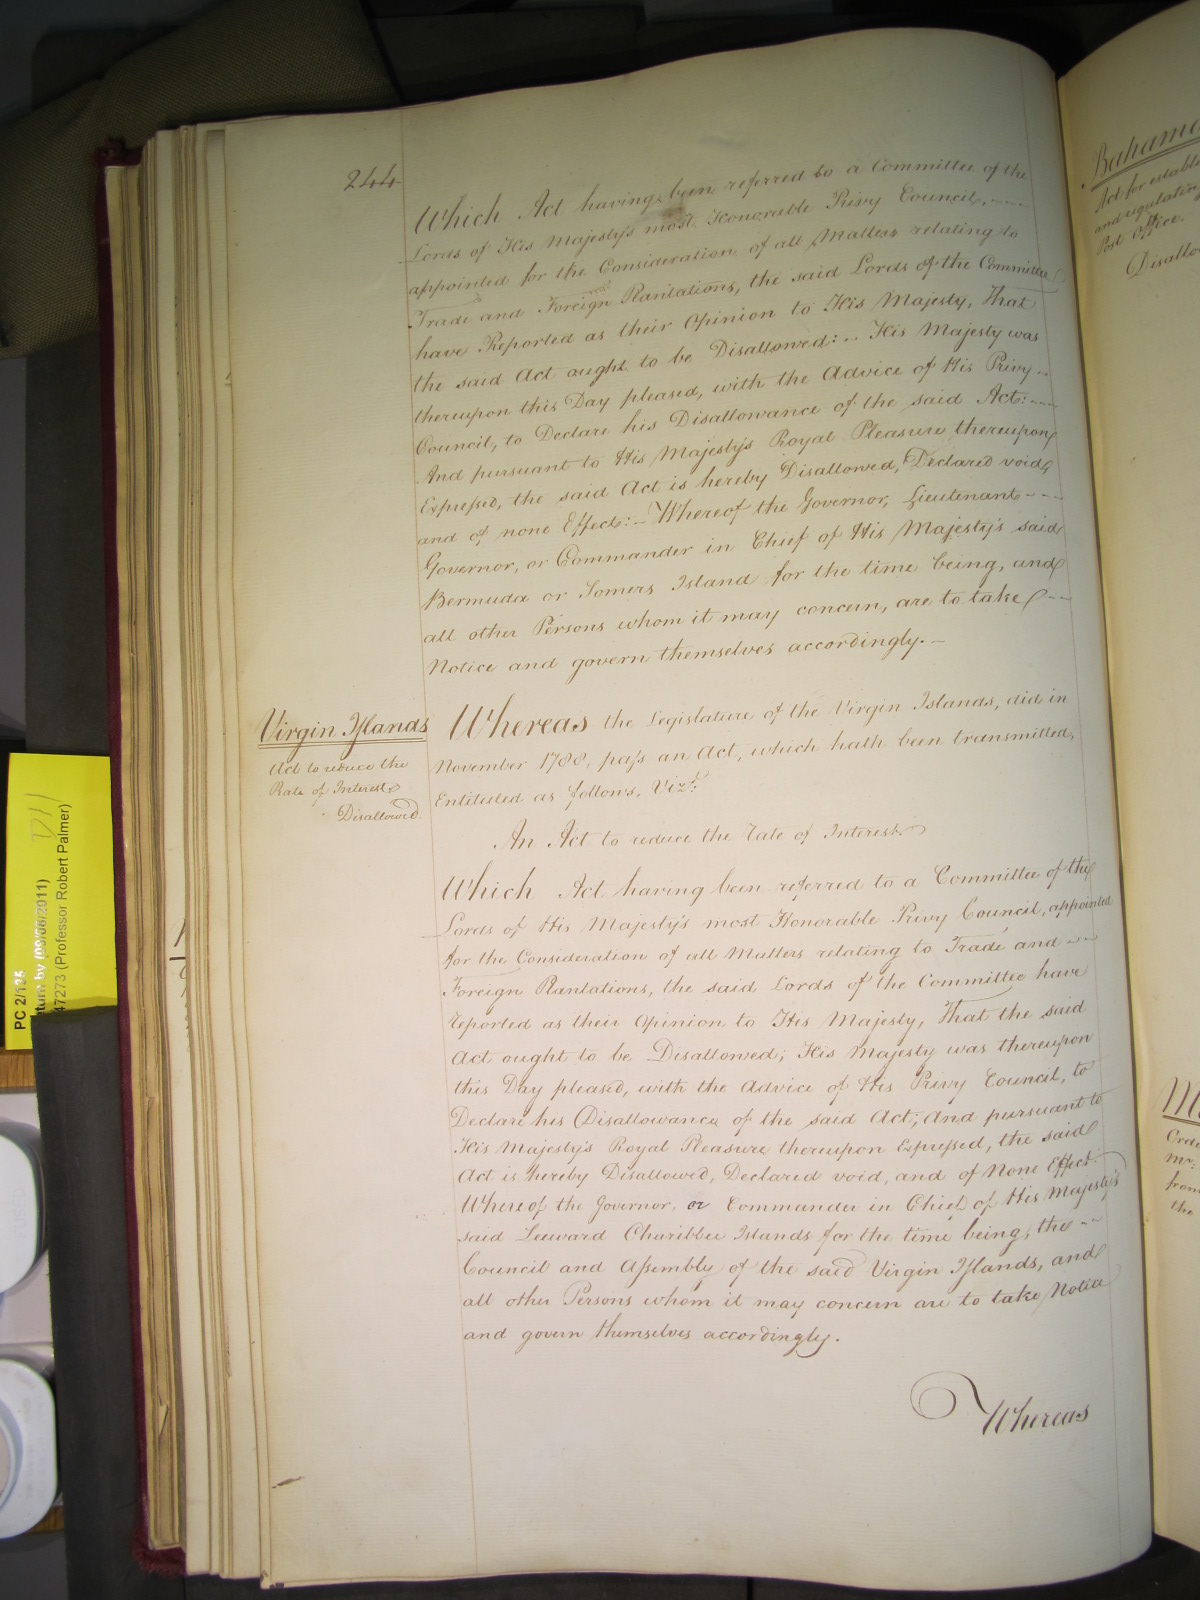 244
Which Act having been referred to a Committee of the
Lords of His Majesty's most Honorable Privy Council,
appointed for the Consideration of all Matters relating to
Trade and Foreign Plantations, the said Lords of the Committee
have Reported as their Opinion to His Majesty, That
the said Act ought to be Disallowed:- His Majesty was
thereupon this Day pleased, with the Advice of His Privy
Council, to Declare his Disallowance of the said Act:-
And pursuant to His Majesty's Royal Pleasure thereupon
Expressed, the said Act is hereby Disallowed, Declared void,
and of none Effect:- Whereof the Governor, Lieutenant
Governor, or Commander in Chief of His Majesty's said
Bermuda or Somers Island for the time being, and
all other Persons whom it may concern, are to take
Notice and govern themselves accordingly.-
Virgin Islands
Act to reduce the
Rate of Interest
Disallowed.
Whereas the Legislature of the Virgin Islands, did in
November 1788, pass an Act, which hath been transmitted,
Entituled as follows, Vizt.
An Act to reduce the Rate of Interest.
Which Act having been referred to a Committee of the
Lords of His Majesty's most Honorable Privy Council, appointed
for the Consideration of all Matters relating to Trade and
Foreign Plantations, the said Lords of the Committee have
reported as their Opinion to His Majesty, That the said
Act ought to be Disallowed; His Majesty was thereupon
this Day pleased, with the Advice of His Privy Council, to
Declare his Disallowance of the said Act; And pursuant to
His Majesty's Royal Pleasure thereupon Expressed, the said
Act is hereby Disallowed, Declared void, and of None Effect.
Whereof the Governor, or Commander in Chief of His Majesty's
said Leeward Charibbee Islands for the time being, the
Council and Assembly of the said Virgin Islands, and
all other Persons whom it may concern are to take Notice
and govern themselves accordingly.
Whereas
Bahama
Act for establ
and regulatin
Post Office.
Disallo
Orde
Mr.
from
the
PC 2/135
turn by (09/08/2011)
47273 (Professor Robert Palmer)